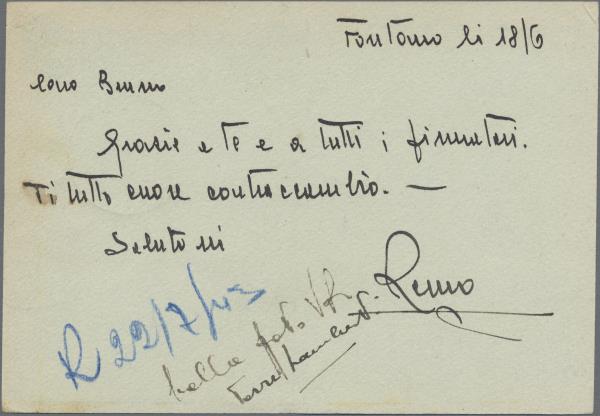 li 18/6
Caro Bruno
Grazie a te e a tutti i firmatari.
Di tutto cuore contraccambio. —
Salutoni
Remo
R 22/7/43
bella foto